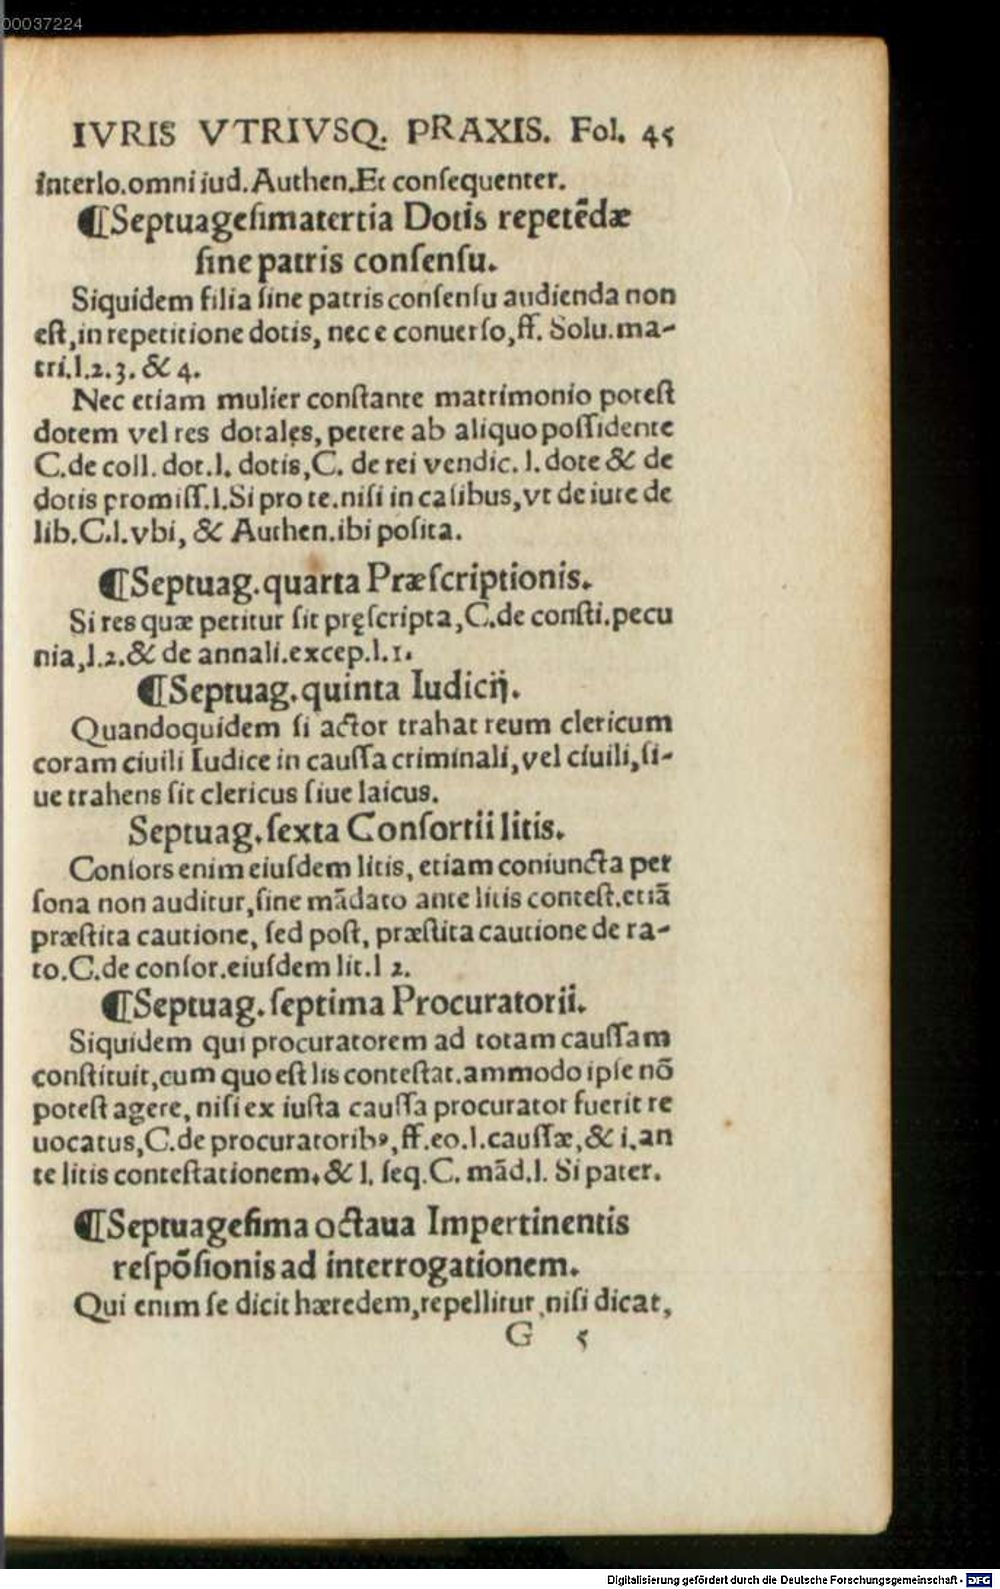 00037224
IVRIS VTRIVSQ. PRAXIS. Fol. 45
interlo.omni iud.Authen.Et conſequenter.
¶Septuageſimatertia Dotis repetẽdæ
ſine patris conſenſu.
Siquidem filia ſine patris conſenſu audienda non
eſt,in repetitione dotis, nec e conuerſo,ff. Solu.ma-
tri.l.2.3. & 4.
Nec etiam mulier conſtante matrimonio poteſt
dotem vel res dotales, petere ab aliquo poſſidente
C.de coll. dot.l. dotis,C. de rei vendic. l. dote & de
dotis promiſſ.l.Si pro te.niſi in caſibus,vt de iure de
lib.C.l.vbi, & Authen.ibi poſita.
¶Septuag.quarta Præſcriptionis.
Si res quæ petitur ſit pręſcripta,C.de conſti.pecu
nia,l.2.& de annali.excep.l.1.
¶Septuag.quinta Iudicij.
Quandoquidem ſi actor trahat reum clericum
coram ciuili Iudice in cauſſa criminali,vel ciuili,ſi-
ue trahens ſit clericus ſiue laicus.
Septuag.ſexta Conſortii litis.
Conſors enim eiuſdem litis, etiam coniuncta per
ſona non auditur,ſine mãdato ante litis conteſt.etiã
præſtita cautione, ſed poſt, præſtita cautione de ra-
to.C.de conſor.eiuſdem lit.l 2.
¶Septuag.ſeptima Procuratorii.
Siquidem qui procuratorem ad totam cauſſam
conſtituit,cum quo eſt lis conteſtat.ammodo ipſe nõ
poteſt agere, niſi ex iuſta cauſſa procurator fuerit re
uocatus,C.de procuratoribꝰ,ff.eo.l.cauſſæ,& i.an
te litis conteſtationem.& l. ſeq.C. mãd.l. Si pater.
¶Septuageſima octaua Impertinentis
reſpõſionis ad interrogationem.
Qui enim ſe dicit hæredem,repellitur,niſi dicat,
G 5
Digitalisierung gefördert durch die Deutsche Forschungsgemeinschaft - DFG